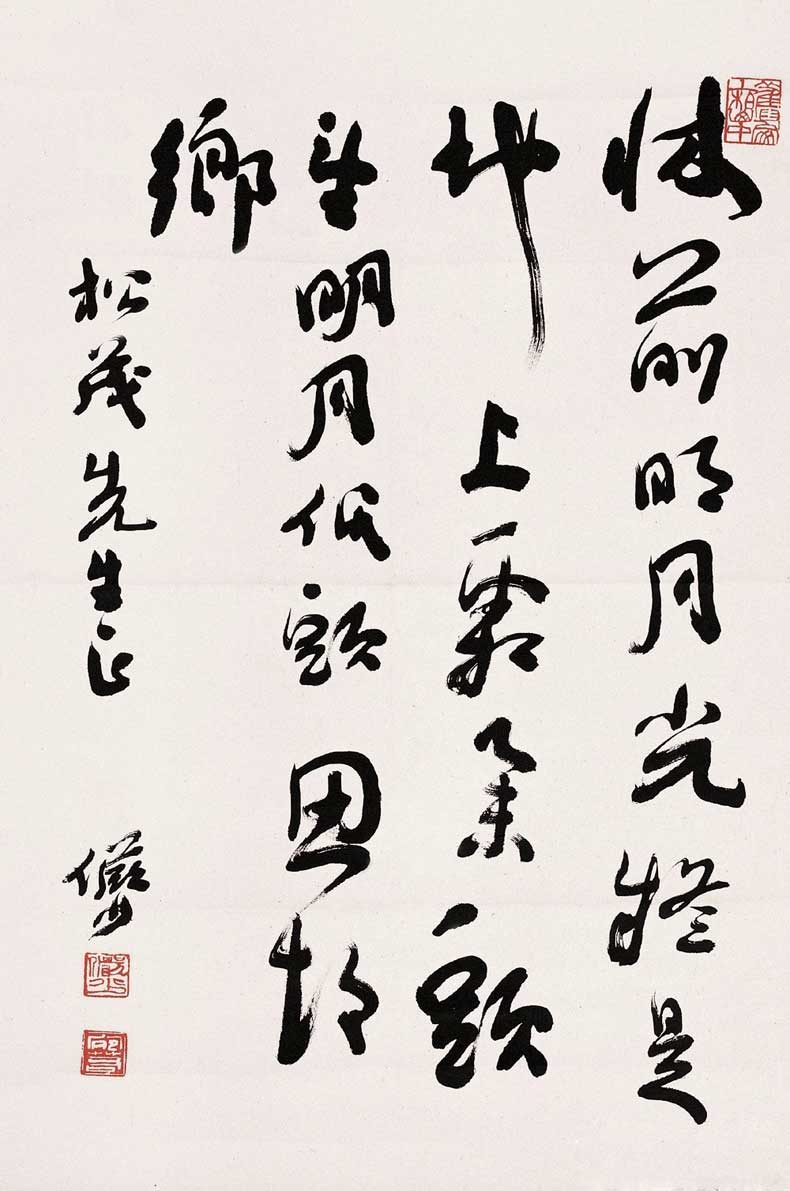 牀前明月光疑是
地上霜舉頭
望明月低頭思故
鄉
松茂先生正 儼少